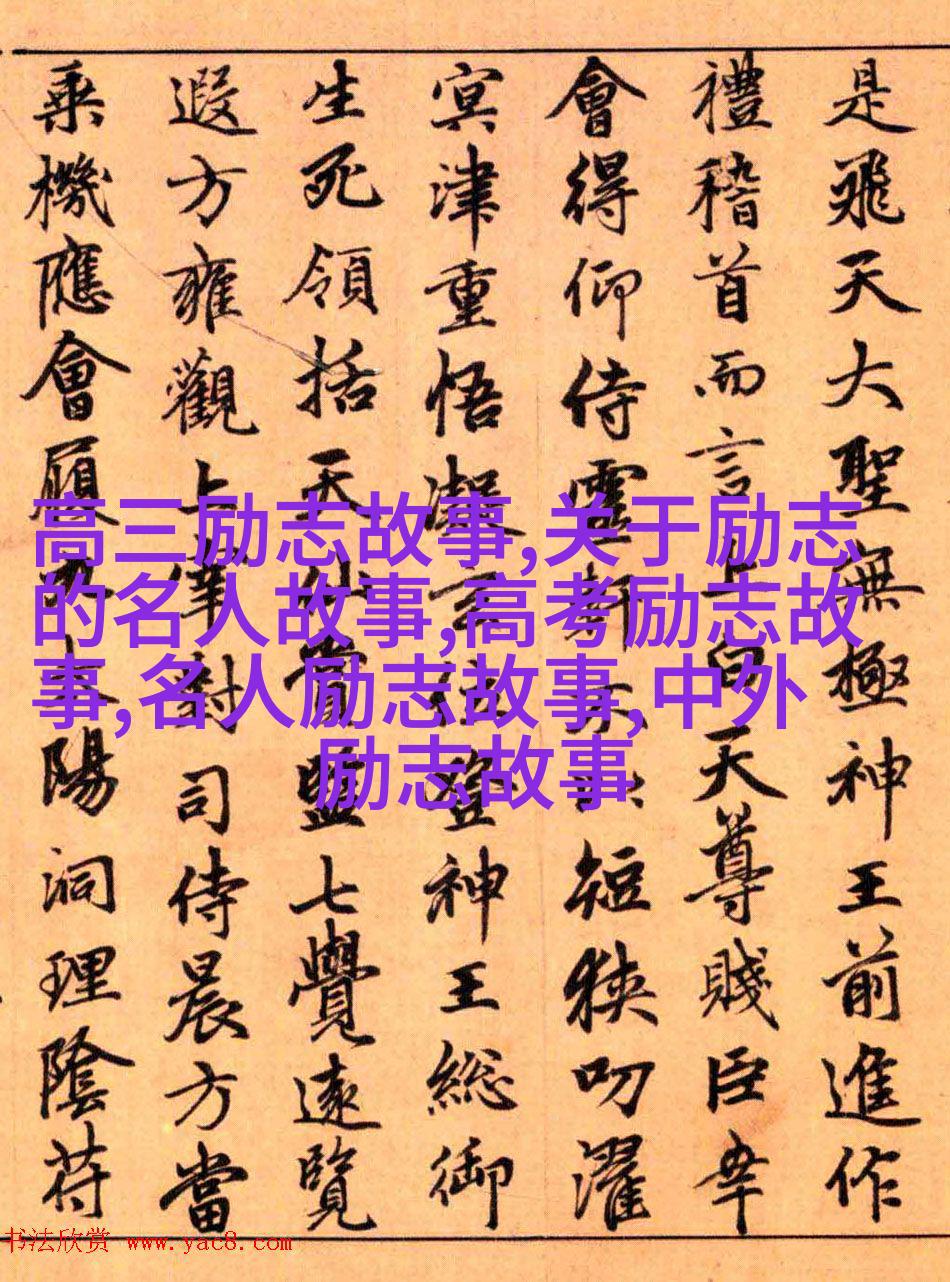 是飛天大聖無極神王前進作
禮稽首而言上白天尊賤臣幸
會得仰侍靈軒短狹叨濯
冥津重悟凝玄登神王総御
生死領括天監七覺遠覽
遐方雍觀上對司侍晨方當
乘機應會陽洞理陰符
高三励志故事,关于励志
的名人故事,高考励志故
事,名人励志故事,中外
励志故事
书法欣赏 www.yac8.com